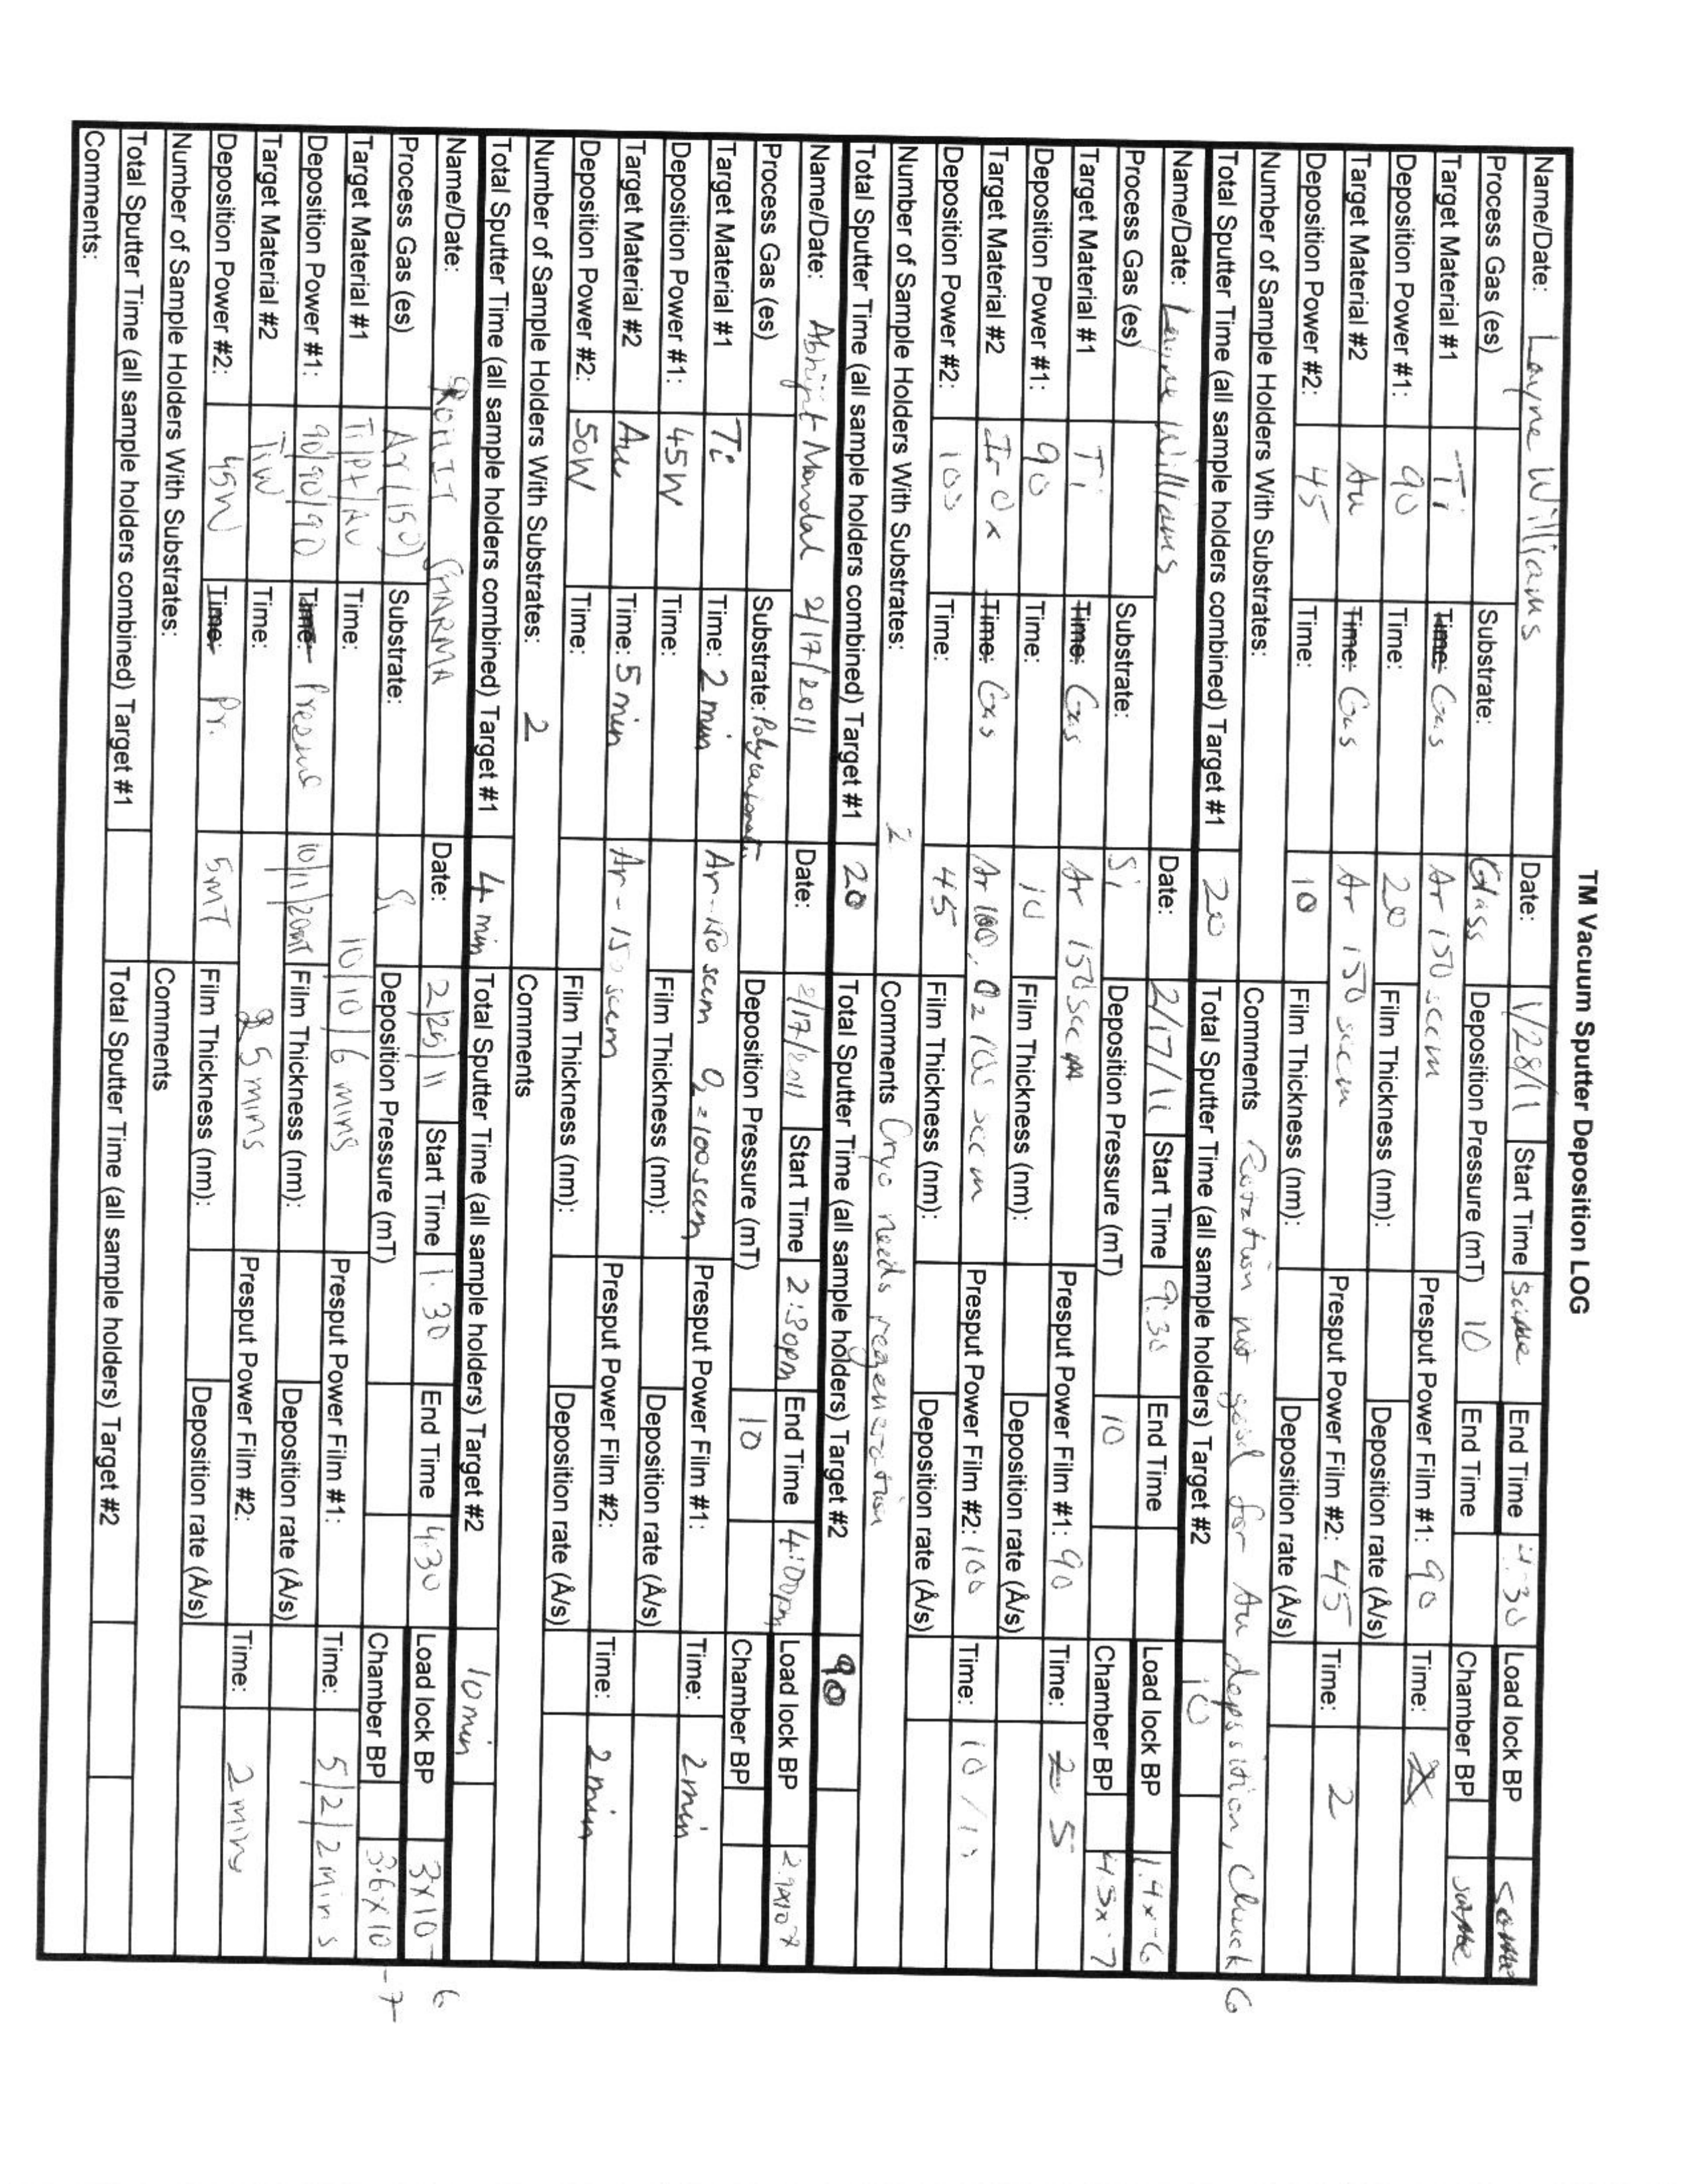 TM Vacuum Sputter Deposition LOG
Name/Date: Layne Williams Date: 1/28/11 Start Time End Time 4:30 Load lock BP same
Process Gas (es) Substrate: Glass Deposition Pressure (mT) 10 End Time Chamber BP same
Target Material #1 Ti Time: Gas Ar 150 sccm Presput Power Film #1: 90 Time:
Deposition Power #1: 90 Time: 20 Film Thickness (nm): Deposition rate (Å/s)
Target Material #2 Au Time: Gas Ar 150 sccm Presput Power Film #2: 45 Time: 2
Deposition Power #2: 45 Time: 10 Film Thickness (nm): Deposition rate (Å/s)
Number of Sample Holders With Substrates: Comments Rotation not good for Au deposition, Chuck 6
Total Sputter Time (all sample holders combined) Target #1 20 Total Sputter Time (all sample holders) Target #2 10
Name/Date: Layne Williams Date: 2/17/11 Start Time 9:30 End Time Load lock BP 1.4x-6
Process Gas (es) Substrate: Si Deposition Pressure (mT) 10 Chamber BP 4.3x-7
Target Material #1 Ti Time: Gas Ar 150 sccm Presput Power Film #1: 90 Time: 2 5
Deposition Power #1: 90 Time: 10 Film Thickness (nm): Deposition rate (Å/s)
Target Material #2 Ir-Ox Time: Gas Ar 100, O2 100 sccm Presput Power Film #2: 100 Time: 10 / 10
Deposition Power #2: 100 Time: 45 Film Thickness (nm): Deposition rate (Å/s)
Number of Sample Holders With Substrates: 2 Comments Cryo needs regeneration
Total Sputter Time (all sample holders combined) Target #1 20 Total Sputter Time (all sample holders) Target #2 90
Name/Date: Abhijit Mandal 2/17/2011 Date: 2/17/2011 Start Time 2:30pm End Time 4:00pm Load lock BP 2.9x10-7
Process Gas (es) Substrate: Polycarbonate Deposition Pressure (mT) 10 Chamber BP
Target Material #1 Ti Time: 2 min Ar-150 sccm O2=100sccm Presput Power Film #1: Time: 2min
Deposition Power #1: 45W Time: Film Thickness (nm): Deposition rate (Å/s)
Target Material #2 Au Time: 5 min Ar-150 sccm Presput Power Film #2: Time: 2min
Deposition Power #2: 50W Time: Film Thickness (nm): Deposition rate (Å/s)
Number of Sample Holders With Substrates: 2 Comments
Total Sputter Time (all sample holders combined) Target #1 4 min Total Sputter Time (all sample holders) Target #2 10min
Name/Date: ROHIT SHARMA Date: 2/25/11 Start Time 1:30 End Time 4:30 Load lock BP 3x10-6
Process Gas (es) Ar (150) Substrate: Si Deposition Pressure (mT) Chamber BP 3.6x10-7
Target Material #1 Ti/Pt/Au Time: 10/10/6 mins Presput Power Film #1: Time: 5/2/2 mins
Deposition Power #1: 90/90/90 Time: 10/11/20mT Film Thickness (nm): Deposition rate (Å/s)
Target Material #2 TiW Time: 5 mins Presput Power Film #2: Time: 2 mins
Deposition Power #2: 45W Time: Pr. 5mT Film Thickness (nm): Deposition rate (Å/s)
Number of Sample Holders With Substrates: Comments
Total Sputter Time (all sample holders combined) Target #1 Total Sputter Time (all sample holders) Target #2
Comments: